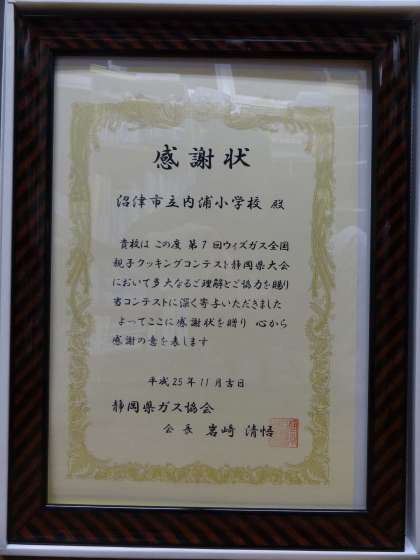 感謝状
沼津市立内浦小学校 殿
貴校は この度 第7回ウィズガス全国
親子クッキングコンテスト静岡県大会
において多大なるご理解とご協力を賜り
当コンテストに深く寄与いただきました
よってここに感謝状を贈り 心から
感謝の意を表します
平成25年11月吉日
静岡県ガス協会
会長 岩崎 清悟